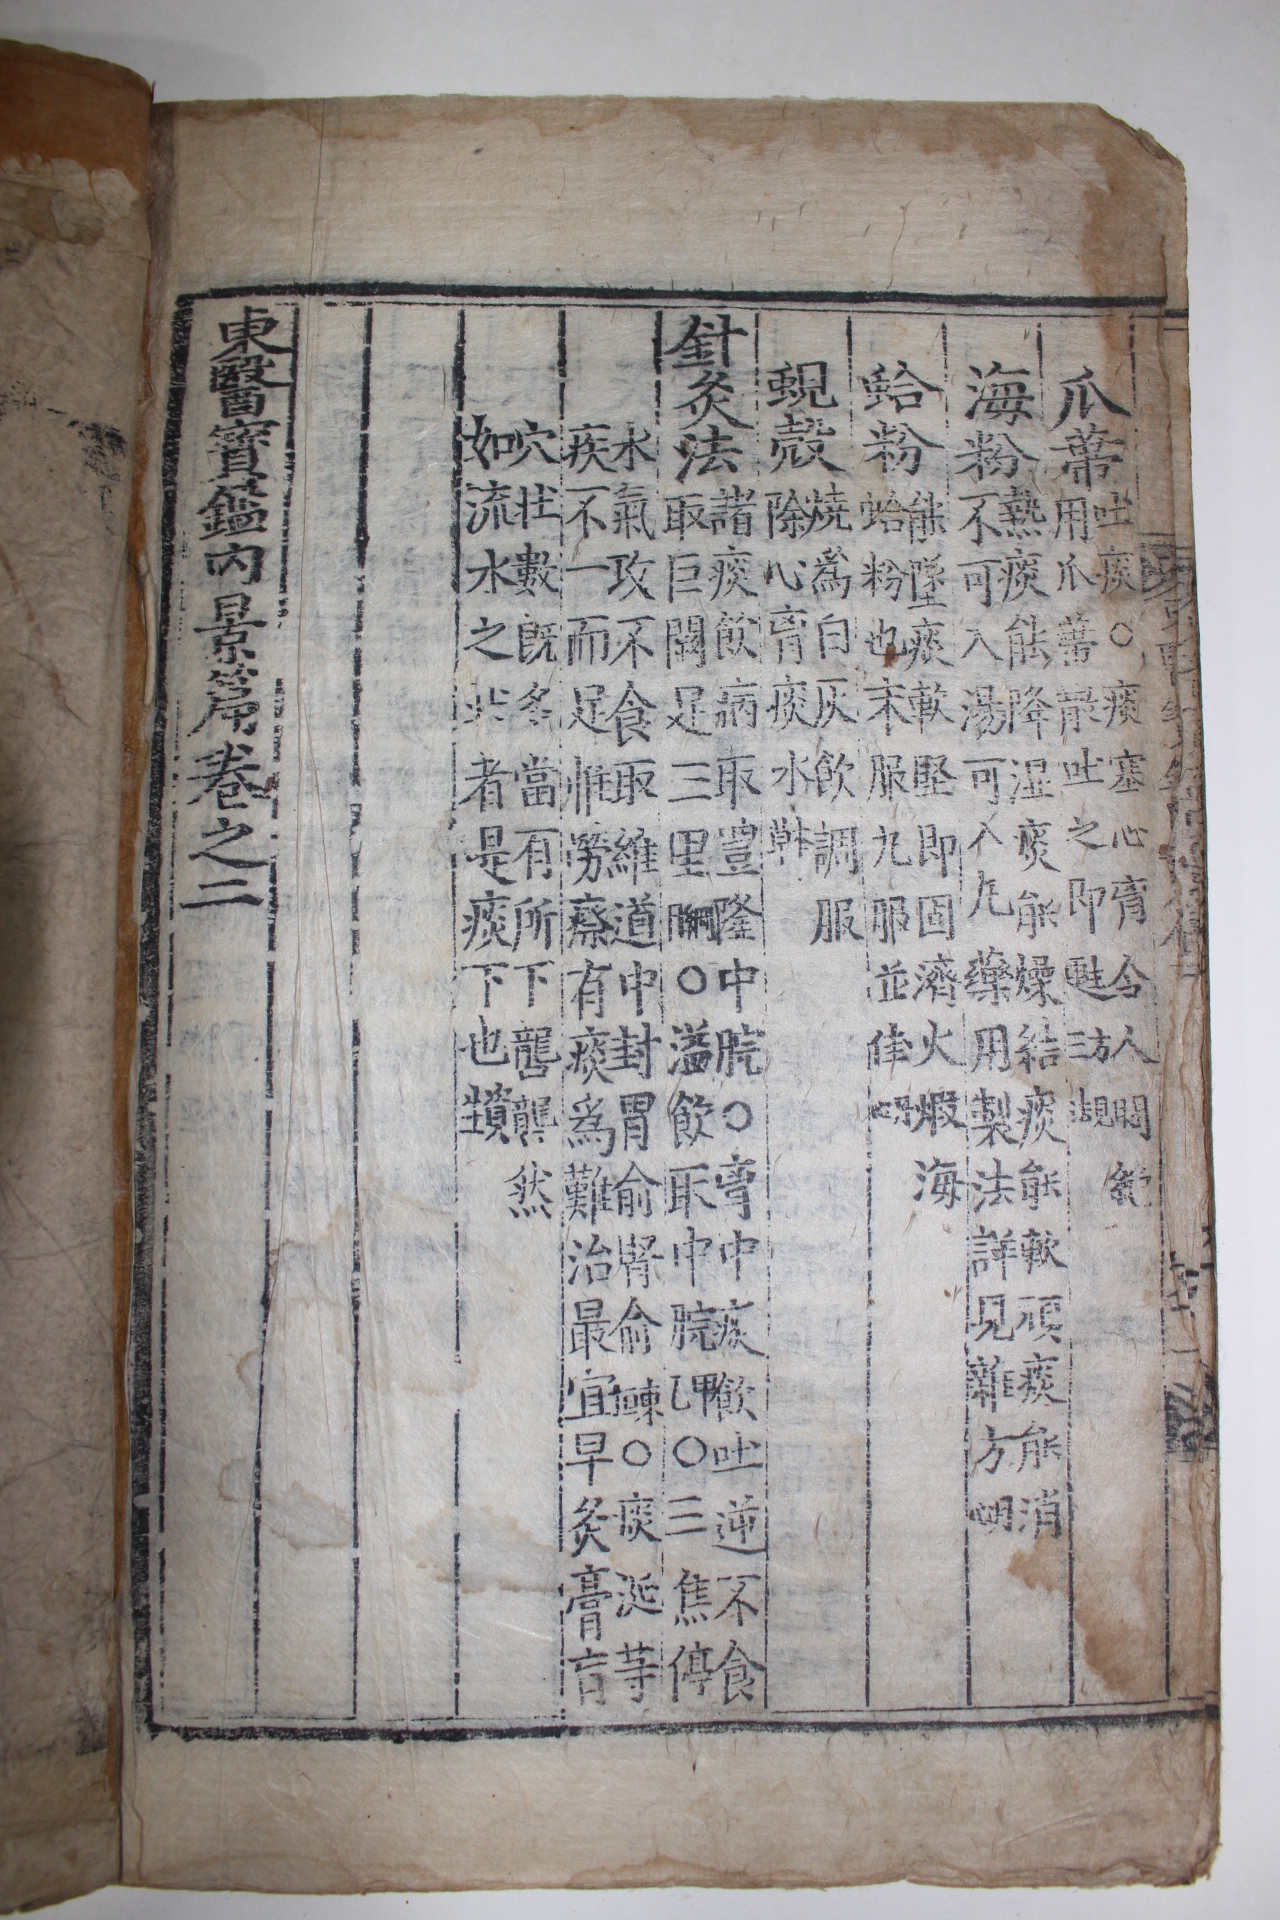 瓜蔕
吐痰○痰塞心育含人悶
用瓜蔕散吐之即甦
海粉
熱痰能降湿痰能燥結痰能軟頑痰能消
不可入湯可入九藥用製法詳見雜方
蛤粉
能墜痰軟堅即固濟火煆海
蛤粉也末服九服並佳
蜆殼
燒爲白灰飲調服
除心育痰水
針灸法
諸痰飮病取豊隆中脘○育中痰飮吐逆不食
取巨闕足三里○溢飮取中脘○三焦停
水氣攻不食取維道中封胃俞腎俞○痰涎等
疾不一而足惟勞瘵有痰爲難治最宜早灸膏肓
穴壮數旣多當有所下礱礱然
如流水之状者是痰下也
東醫寶鑑內景篇巻之二